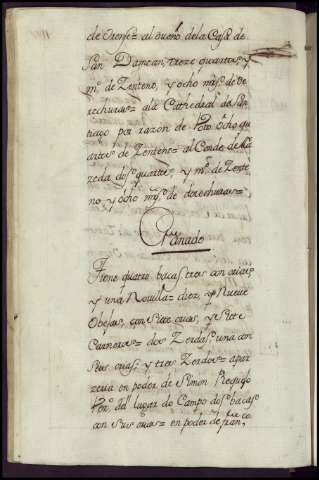 de Trenfo= al dueño dela Casa de
San Damean, treze quartos, y
mº de Zenteno, y ocho mrs de de
rechuras= ala Cathedral de San
tiago por razon de Voto ôcho qu
artos de Zenteno= al Conde de Ma
zeda dos quartos, y mº de Zente
no, y ôcho mrs de derechuras=
Ganado
Tiene quatro bacas tres con crias,
y una Novilla= diez, y Nueve
Obejas, con siete crias, y siete
Carneros= dos Zerdas, una con
seis crias, y tres Zerdos= apar
zeria en poder de Simon
del lugar do Campo dos bacas
con sus crias= en poder de Franco